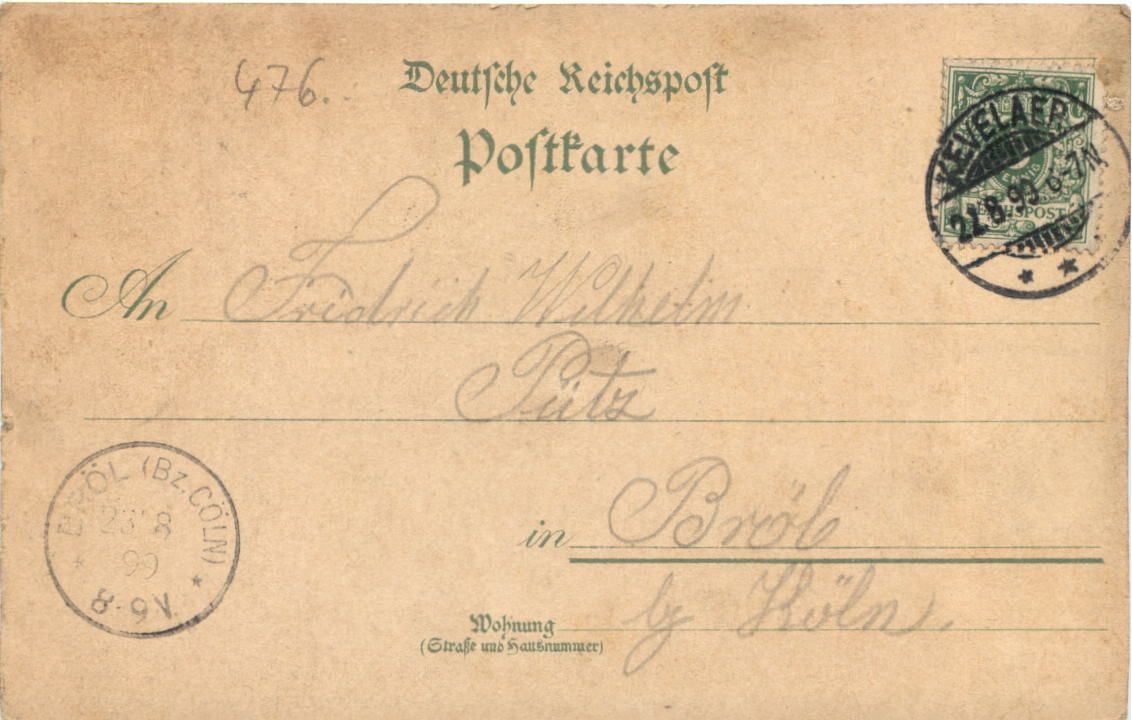 476.
Deutsche Reichspost
Postkarte
KEVELAER
22.8.99 6-7N
PFENNIG
REICHSPOST
An Fridrich Wilhelm
Pütz
BRÖL (Bz. CÖLN)
23 8
99
8-9V.
in Bröl
Wohnung
(Straße und Hausnummer)
bz Köln.